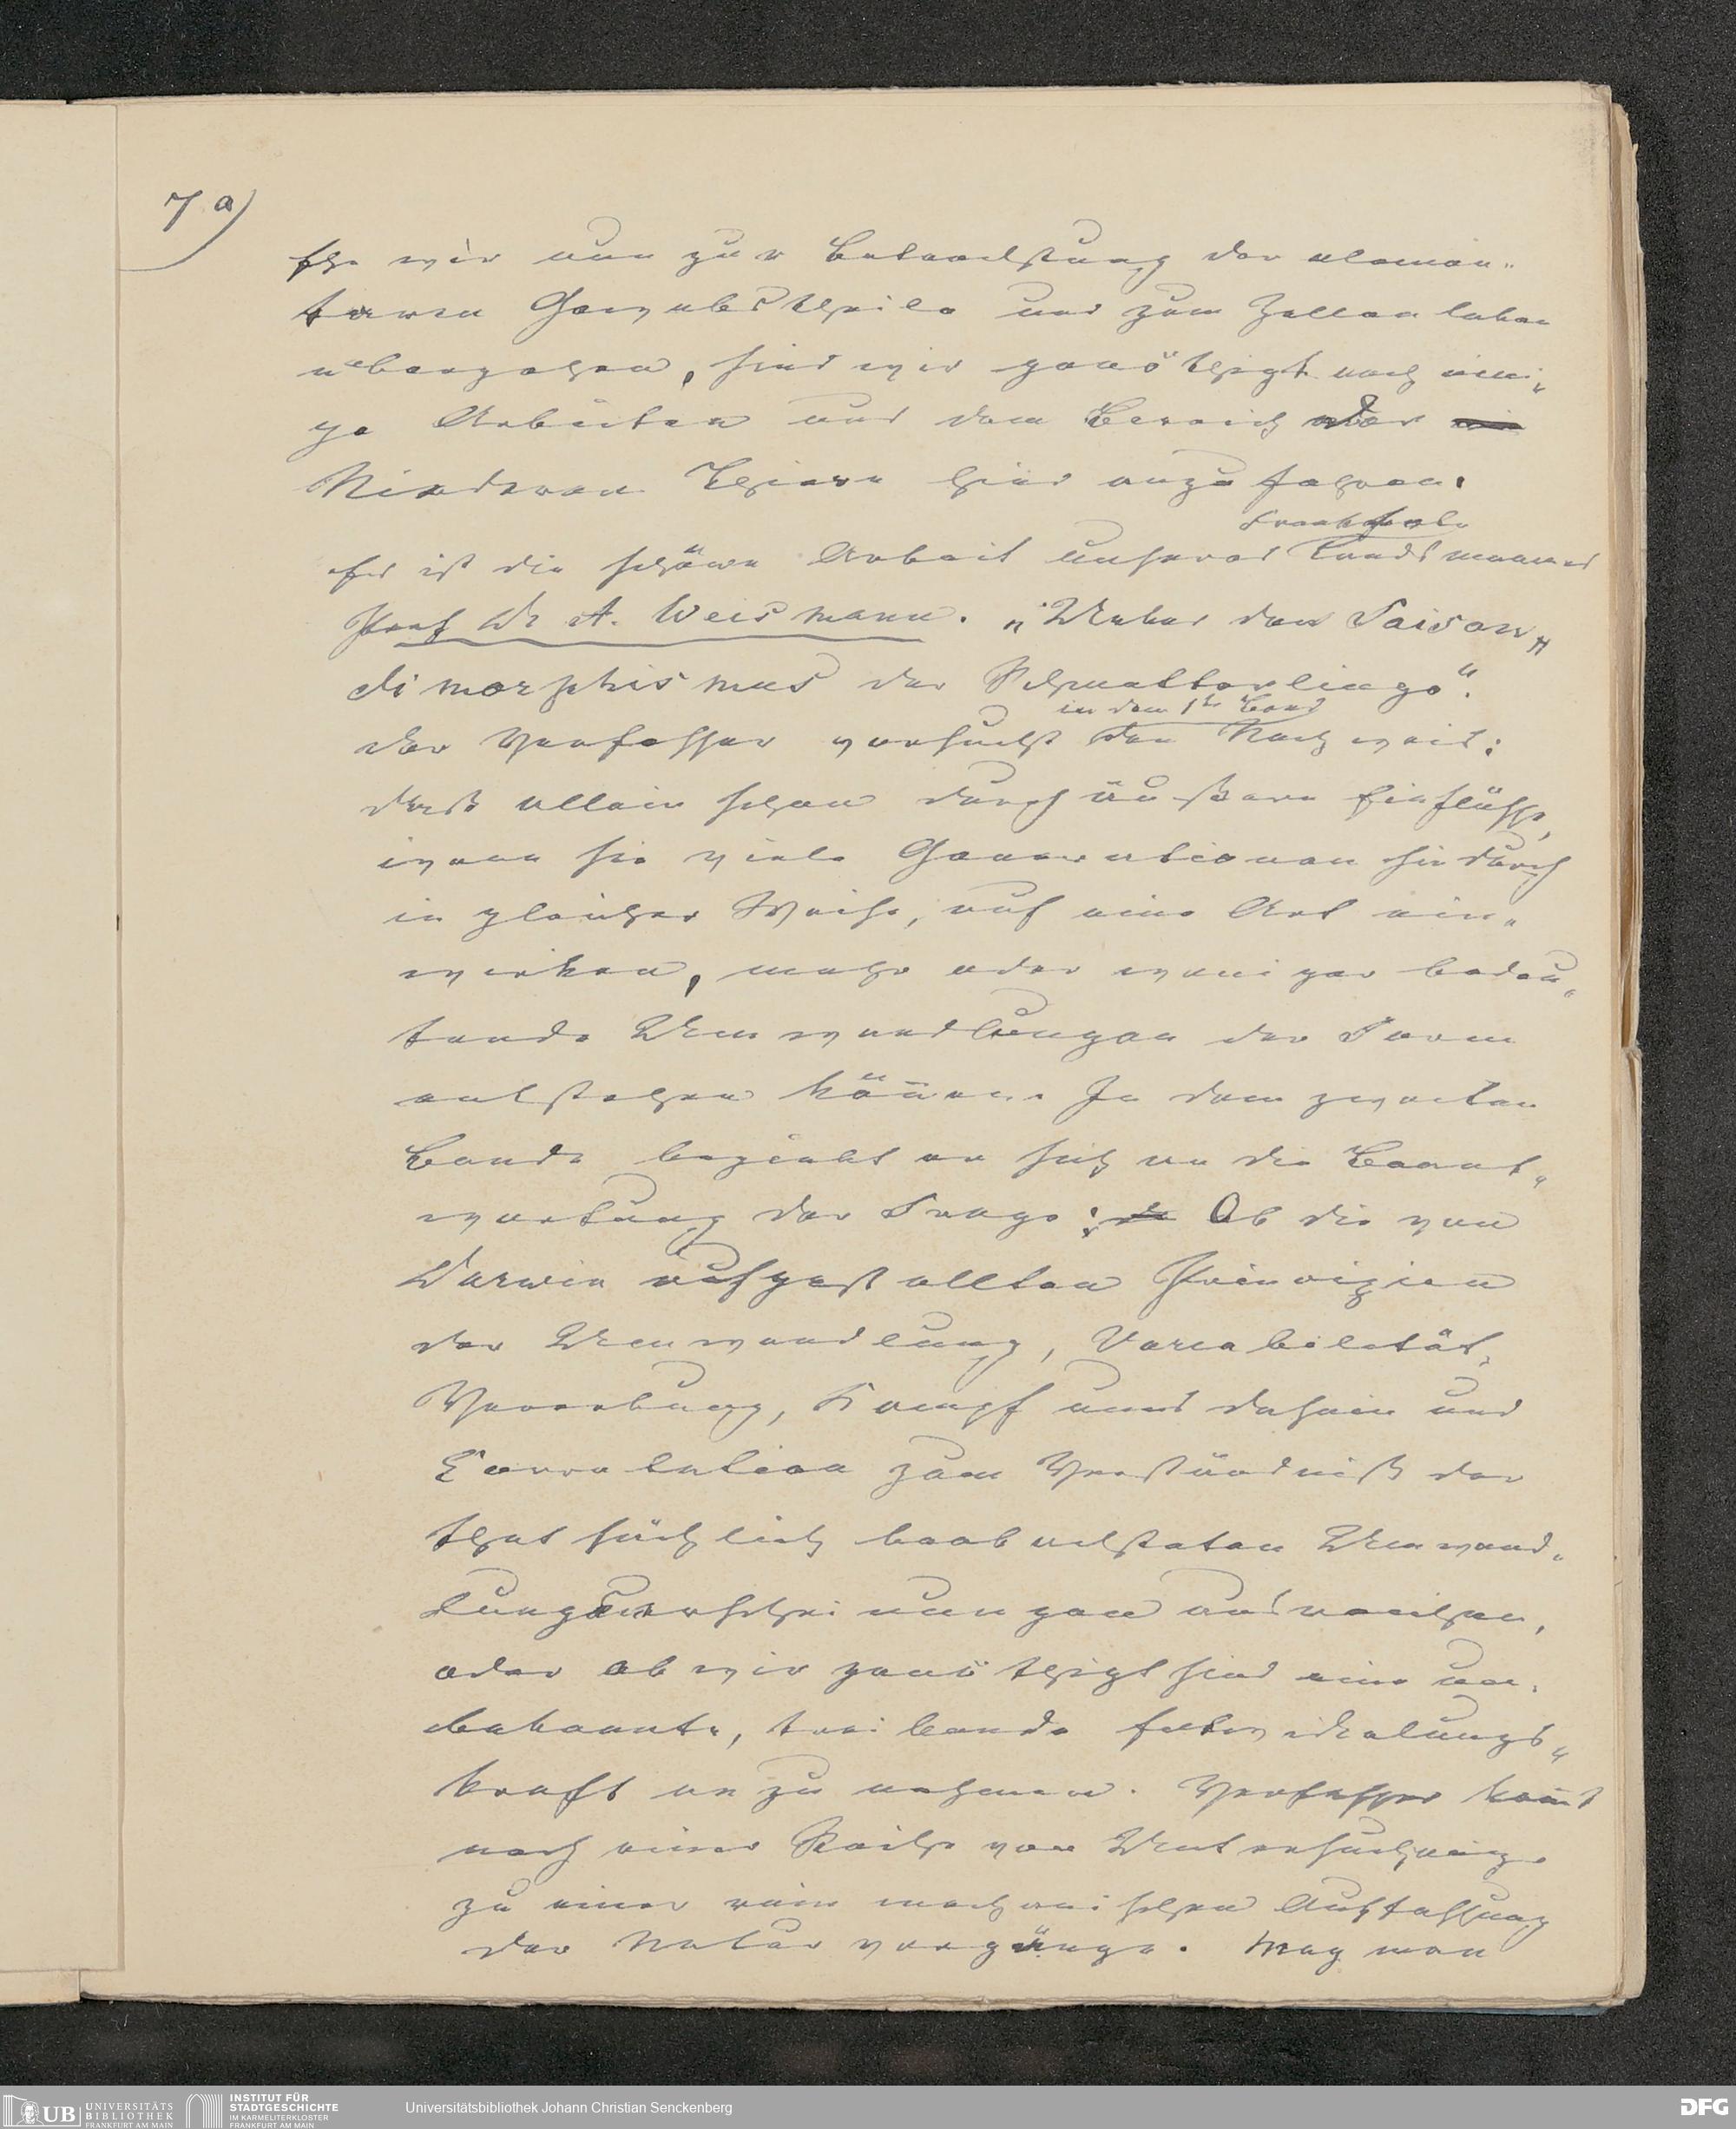 7 a)
Ehe wir nun zur Betrachtung der elemen„
taren Gewebstheile und zum Zellenleben
uebergehen, sind wir genöthigt noch eini„
ge Arbeiten aus dem Bereich der
Niederen Thiere hier anzuführen.
Frankfurter
Es ist die schöne Arbeit unseres Landsmannes
Prof Dr A. Weismann. „Ueber den Saison„
dimorphismus der Schmetterlinge“.
in dem 1ten Band
der Verfasser versucht den Nachweis:
daß allein schon durch äußere Einflüsse,
wenn sie viele Generationen hindurch
in gleicher Weise, auf eine Art ein„
wirken, mehr oder weniger bedeu„
tende Umwandlungen der Form
entstehen können. In dem zweiten
Bande begiebt er sich an die Beant„
wortung der Frage: Ob die von
Darwin aufgestellten Principien
der Umwandlung, Variabilität,
Vererbung, Kampf ums dasein und
Correlation zum Verständniß der
thatsächlich beobachteten Umwand„
lungserscheinungen ausreichen,
oder ob wir genöthigt sind eine un„
bekannte, treibende Entwickelungs„
kraft anzunehmen. Verfasser kommt
nach einer Reihe von Untersuchunge
zu einer rein mechanischen Auffassung
der Naturvorgänge. Mag man
UB UNIVERSITÄTS
BIBLIOTHEK
FRANKFURT AM MAIN
INSTITUT FÜR
STADTGESCHICHTE
IM KARMELITERKLOSTER
FRANKFURT AM MAIN
Universitätsbibliothek Johann Christian Senckenberg
DFG